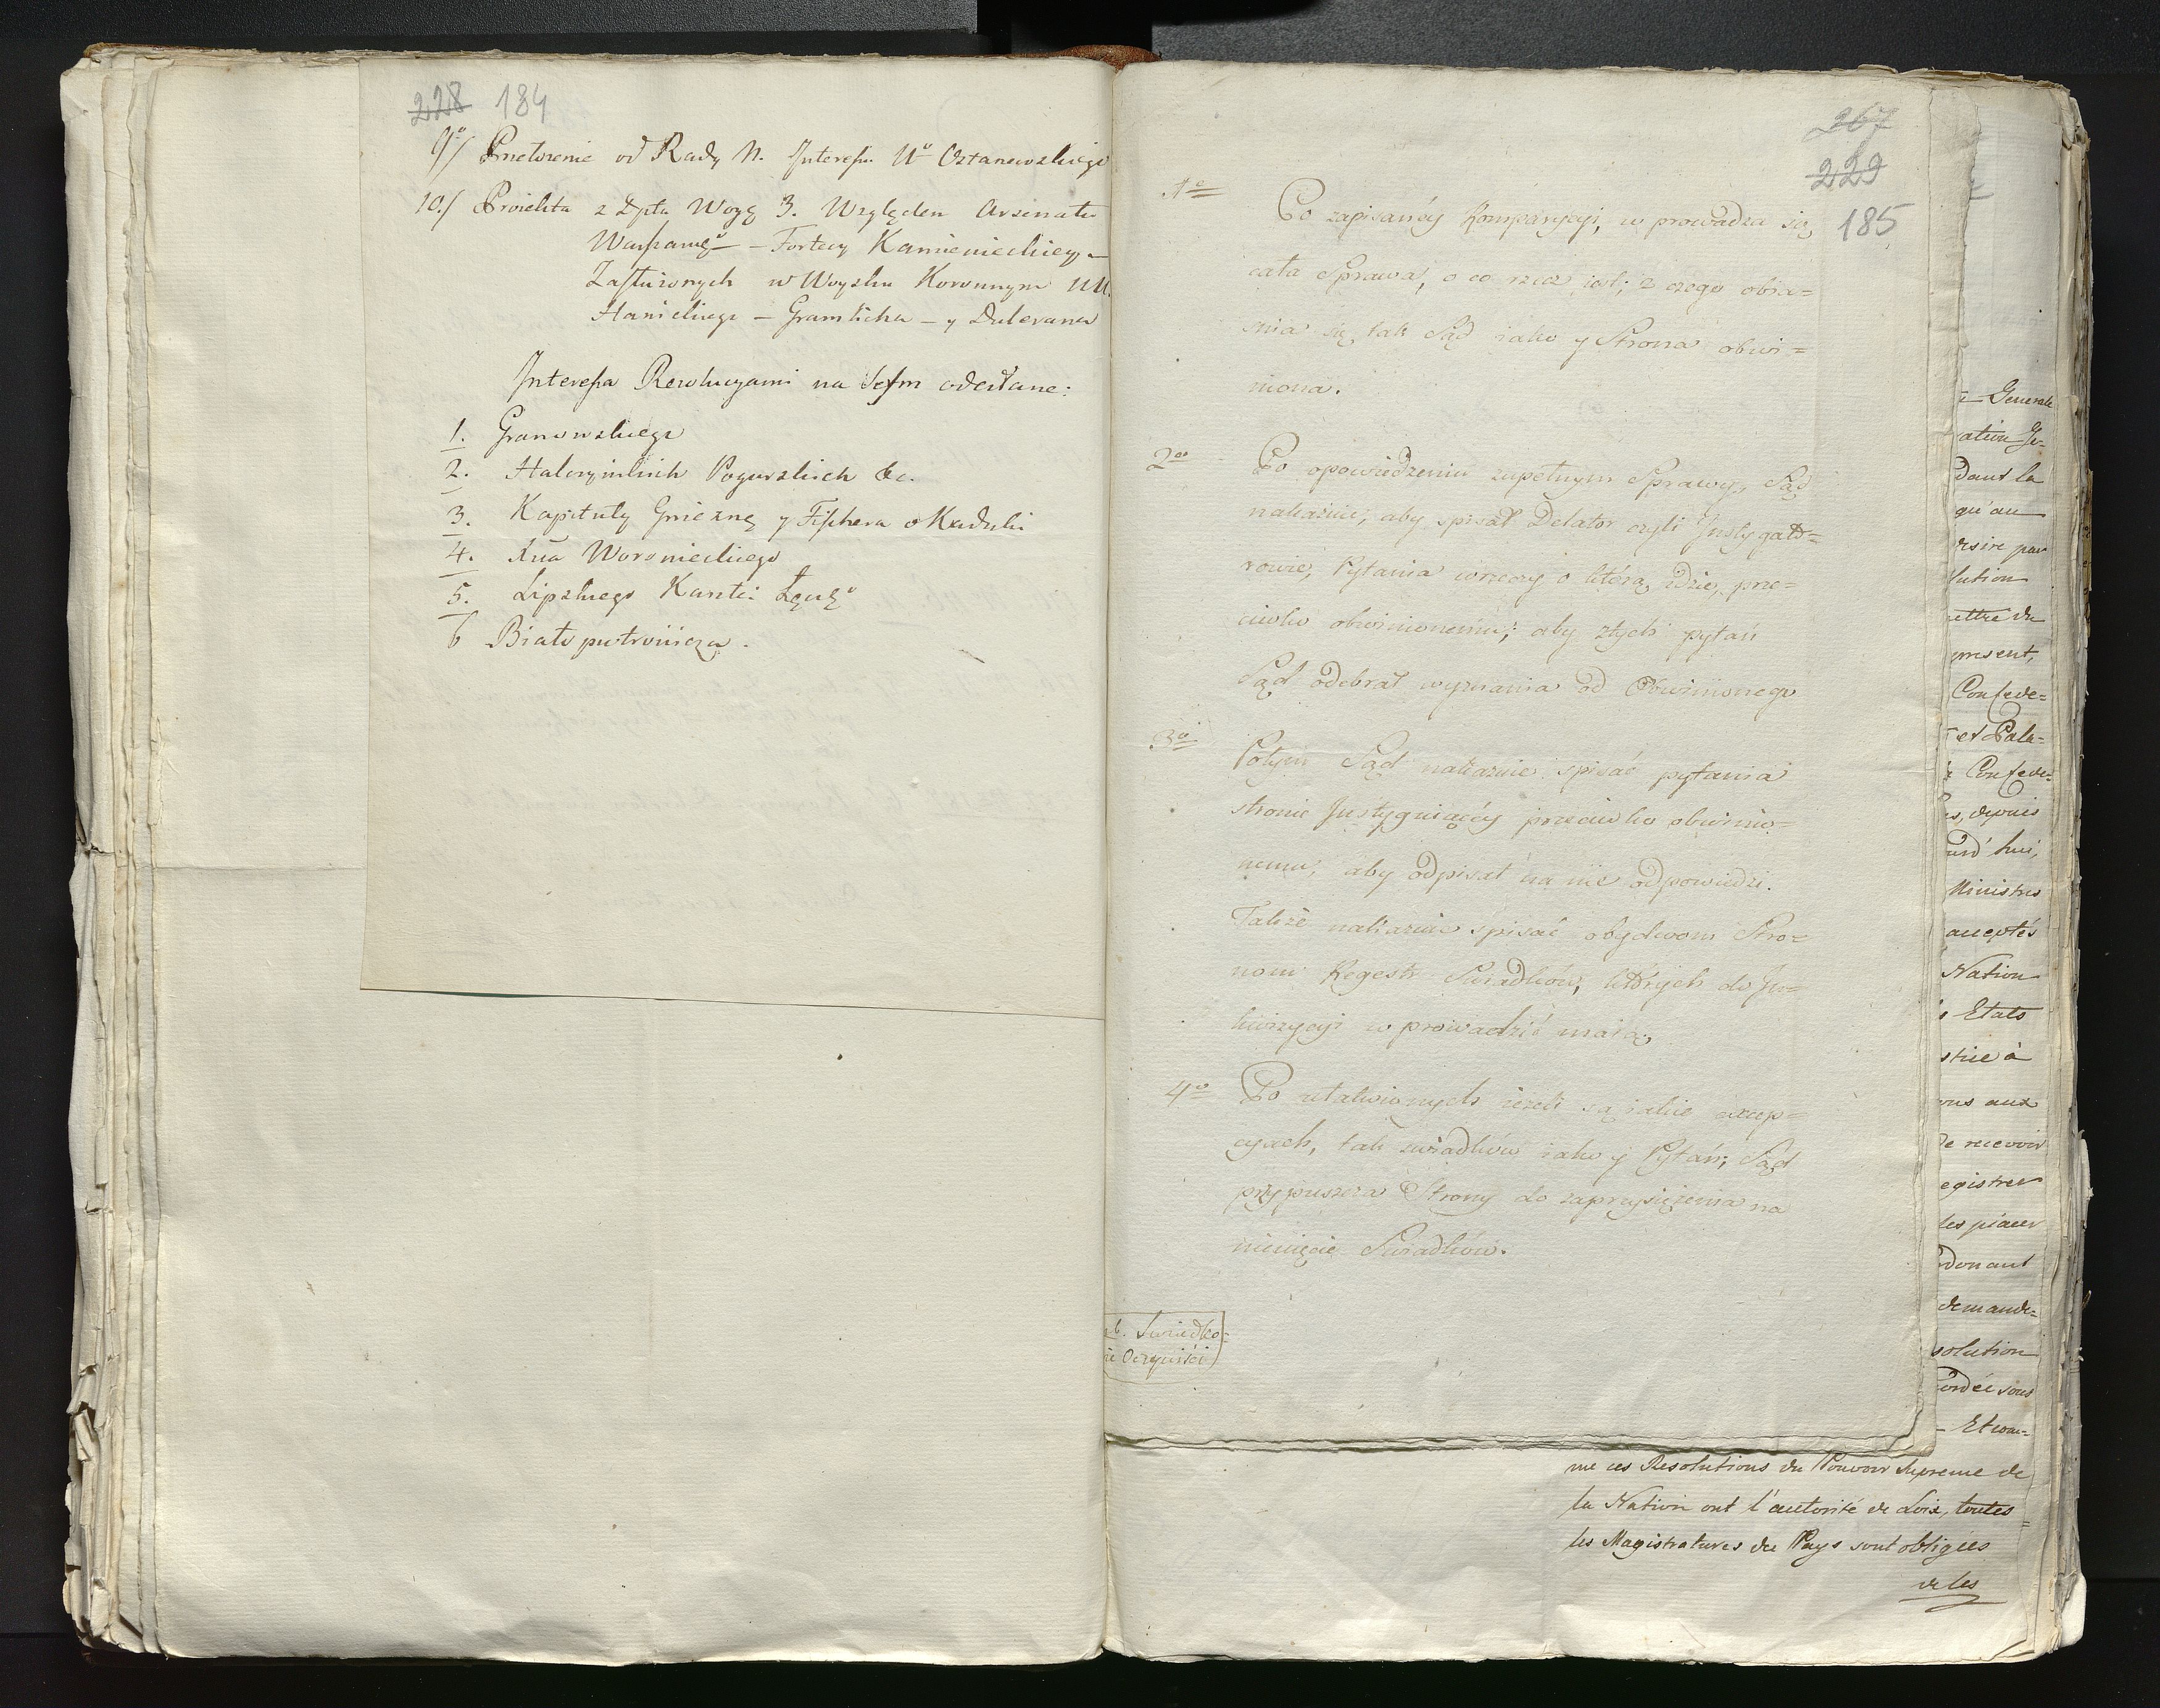 228 184
9º/ Przełożenie od Rady N. Interess. Uº Ostanowskiego
10./ Proiekta z Dptu Woyg 3. Względem Arsenału
Warszawgº — Fortecy Kamienieckiey —
Zasłużonych w Woysku Koronnym UU.
Hanickiego — Gramlicha — y Duleranea
Interessa Rezolucyami na Seym odesłane:
1. Granowskiego
2. Halczyńskich Pogurskich &c.
3. Kapituły Gniezng y Fischera o Kaduki
4. Xcia Woronieckiego
5. Lipskiego Kaszte: Łęcgº
6 Białopiotrowicza.
267
229
185
1º Po zapisanéy Komparycyi, w prowadza się
cała Sprawa, o co rzecz iest; z czego obia=
snia się tak Sąd iako y Strona obwi=
niona.
2do Po opowiedzeniu zupełnym Sprawy, Sąd
nakaźuie, aby spisał Delator czyli Instygato=
rowie, Pytania w rzeczy o którą idzie, prze=
ciwko obwinionemu; aby z tych pytań
Sąd odebrał wyznania od Obwinionego
3º Potym Sąd nakazuie spisać pytania
stronie Instyguiącéy przeciwko obwinio=
nemu, aby odpisał na nie odpowiedzi.
Także nakazuie spisać obydwom Stro=
nom Regestr Swiadków, których do In=
kwizycyi w prowadzić maią,
4º Po utatwionych ieżeli są iakie excep=
cyach, tak swiadków iako y Pytań; Sąd
przypuszcza Strony do zaprzysiężenia na
niewzięcie Swiadków.
Swiadko=
Oczywiści
Generale
ration Ge=
dant la
qu'au
lution
ettre du
present,
Confede=
et Pala=
Confede=
depuis
urd'hui,
Ministres
acceptés
Nation
Etats
stice à
ons aux
de recevoir
egistrer
les placer
donant
demande=
solution
ordée sous
Et com=
me ces Resolutions du Pouvoir Supreme de
la Nation ont l'autorité de Loix, toutes=
les Magistratures du Pays sont obligées
de les